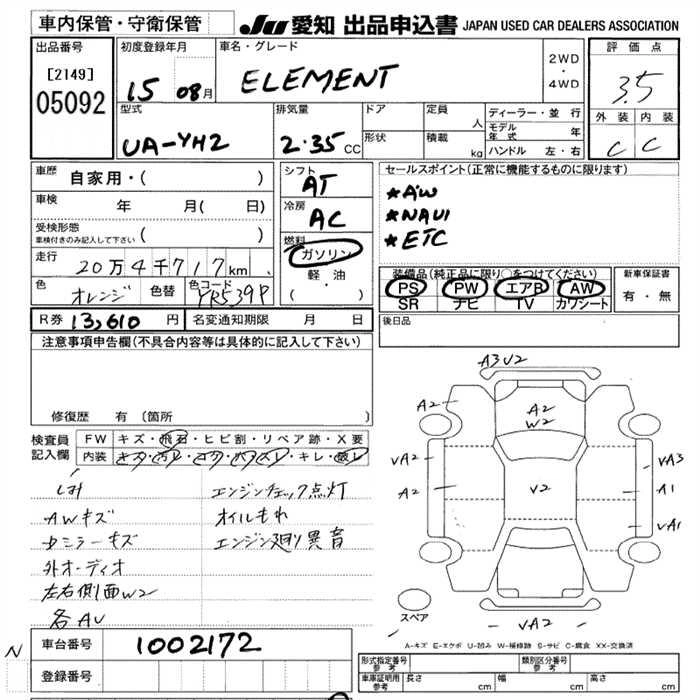 車内保管・守衛保管
JU 愛知 出品申込書 JAPAN USED CAR DEALERS ASSOCIATION
出品番号
[2149]
05092
初度登録年月
15 08月
車名・グレード
ELEMENT
2WD
・
4WD
評価点
3.5
外装 内装
C C
型式
UA-YH2
排気量
2.35 CC
ドア
形状
定員
人
積載
kg
ディーラー・並行
モデル年式 年
ハンドル 左・右
車歴
自家用・( )
車検 年 月( 日)
受検形態
車検付きのみ記入して下さい
( )
走行
20万4千717km
色
オレンジ
色替
色コード
YR539P
シフト
AT
冷房
AC
燃料
ガソリン
軽・油
( ・ )
セールスポイント(正常に機能するものに限ります)
★AW
★NAVI
★ETC
装備品(純正品に限り○をつけてください)
PS PW エアB AW
SR ナビ TV カワシート
新車保証書
有・無
R券 13,610 円
名変通知期限 月 日
後日品
注意事項申告欄(不具合内容等は具体的に記入して下さい)
修復歴 有 (箇所 )
検査員
記入欄
FW キズ・飛石・ヒビ割・リペア跡・X要
内装 キズ・汚レ・コゲ・ハズレ・キレ・破レ
しみ
AWキズ
中ミラーキズ
外オーディオ
左右側面W2
各AU
エンジンチェック点灯
オイルもれ
エンジン廻り異音
A3 U2
A2
A2
W2
VA2
A2
V2
VA3
A1
VA1
VA2
スペア
A-キズ E-エクボ U-凹み W-補修跡 S-サビ C-腐食 XX-交換済
N
車台番号 1002172
登録番号
形式指定番号
参考
類別区分番号
参考
車庫証明用
参考
長さ cm
幅 cm
高さ cm